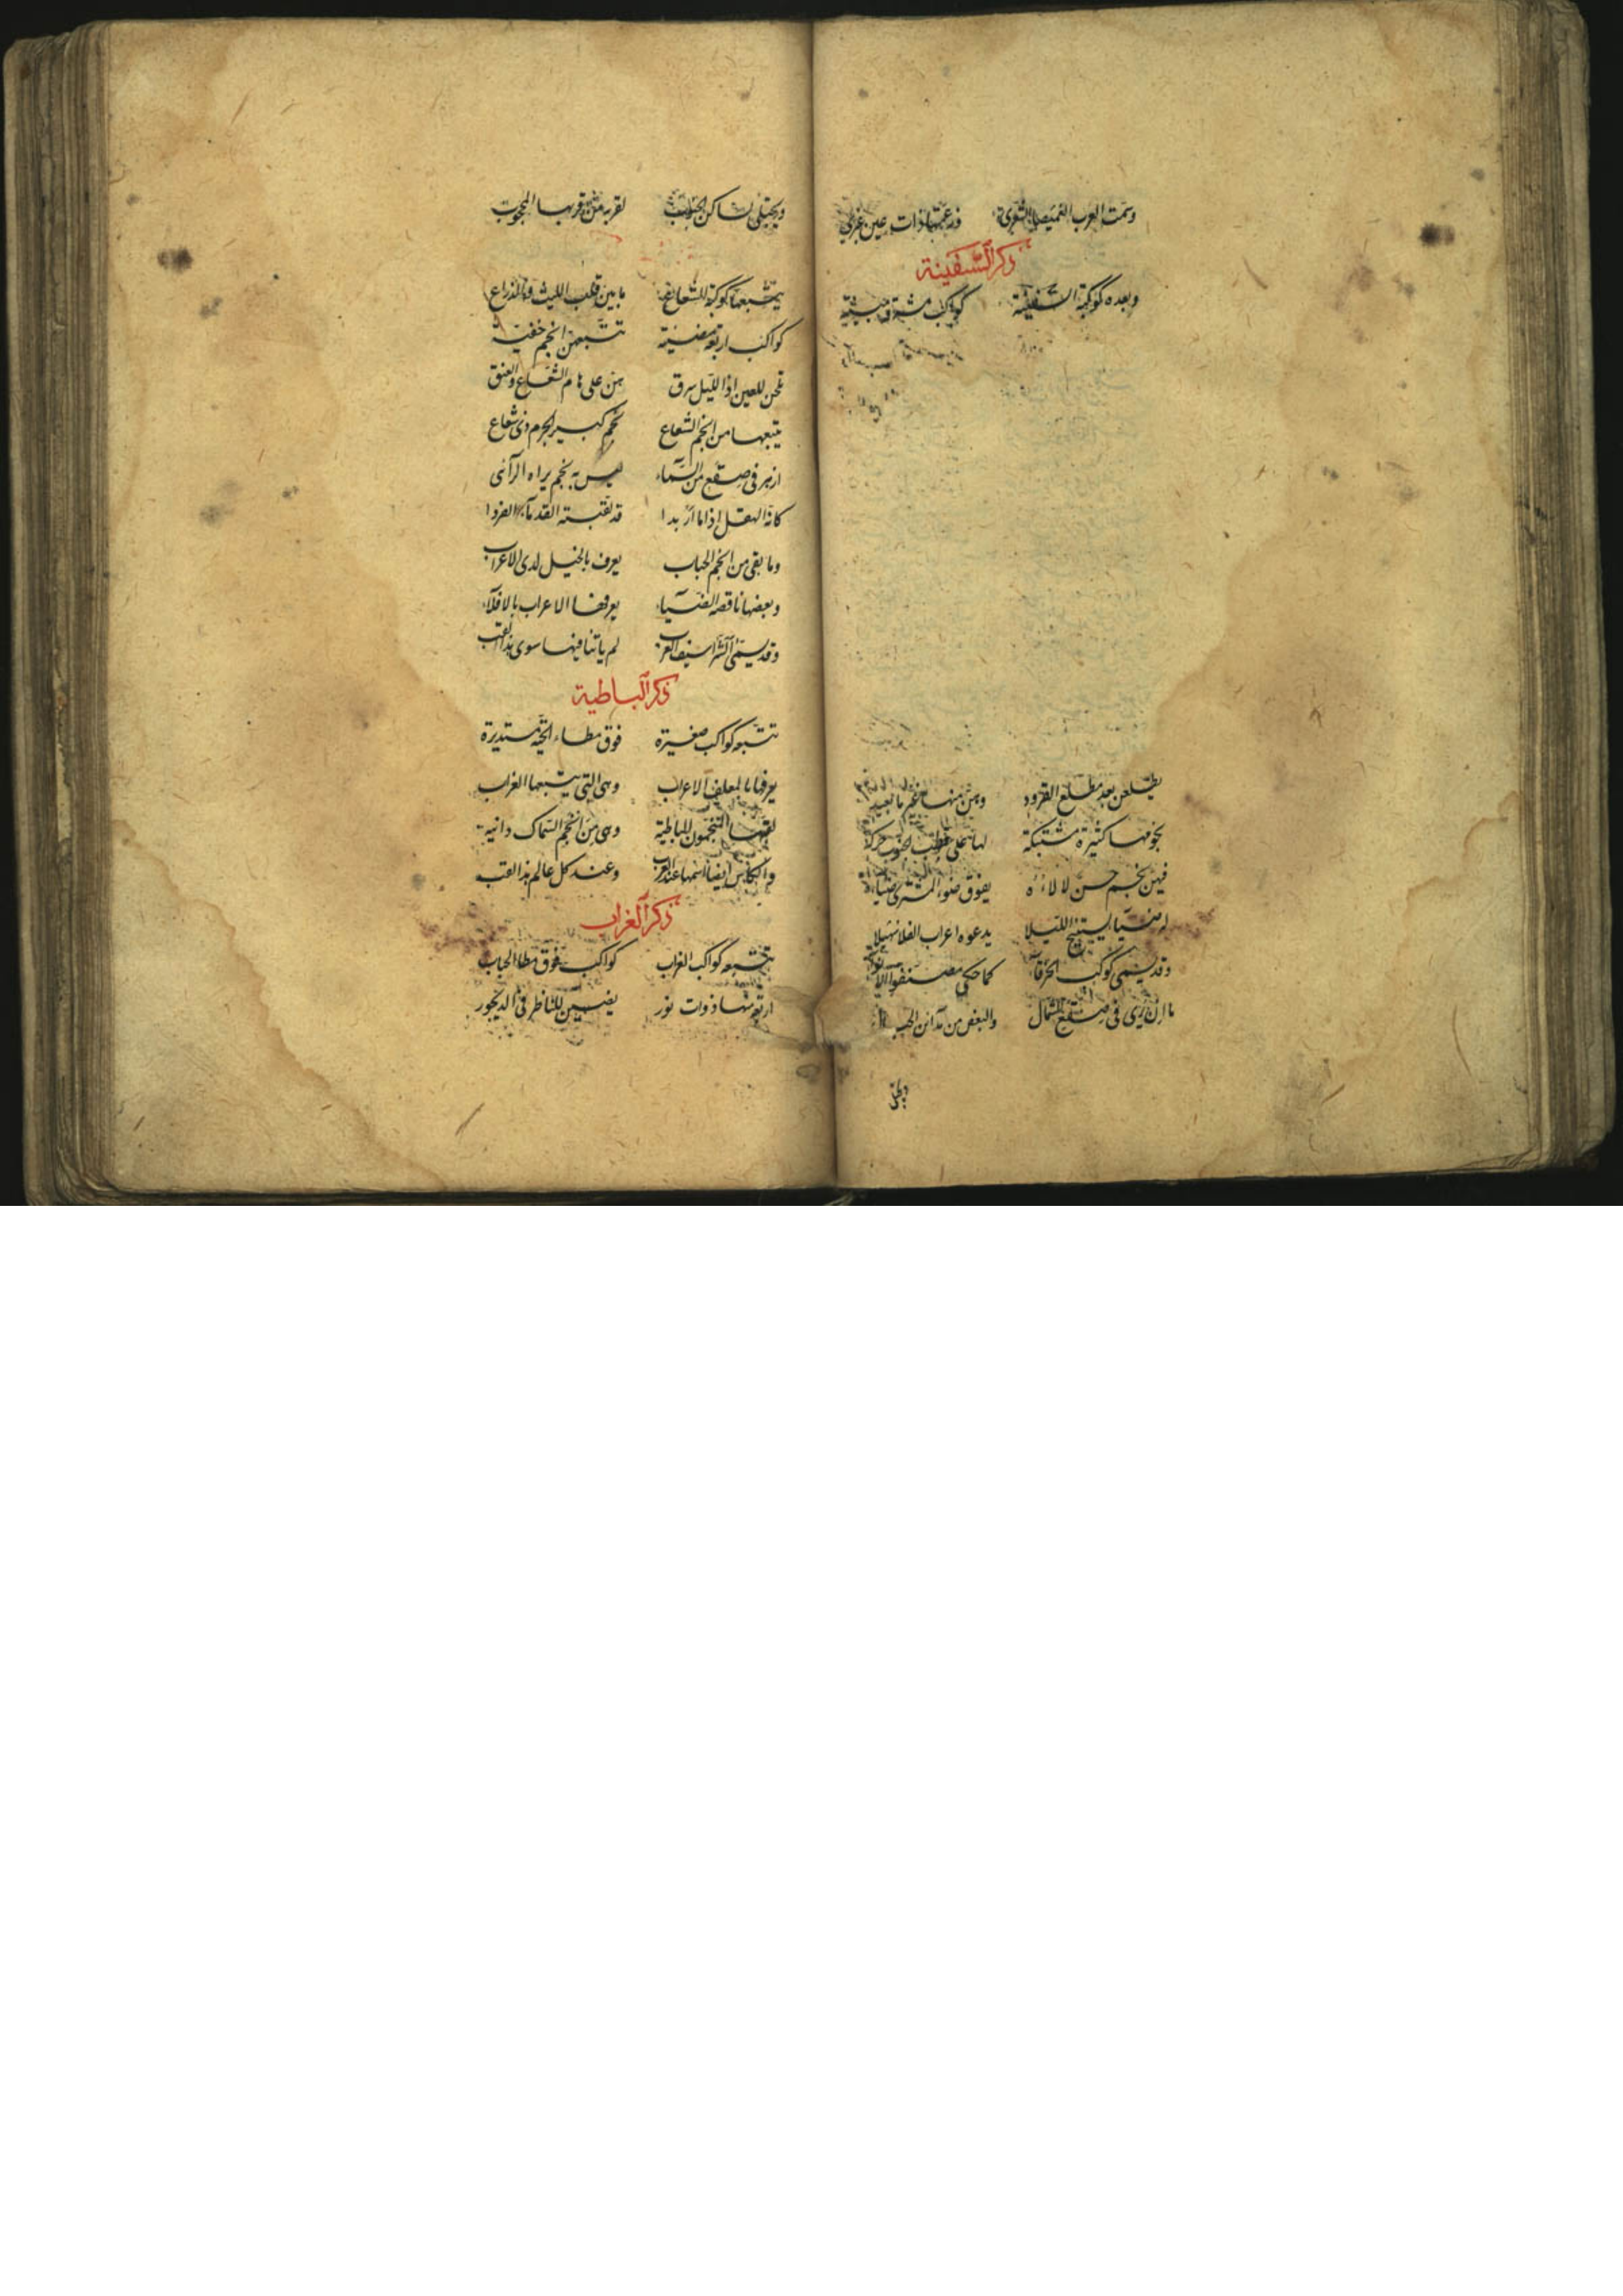 وسمت العرب الغميصا بالشعرى قد عمتها ذات عين عبرى
ذكر السفينة
وبعده كوكبة السفينة كواكب مشرقة مبينة
يطلعن بعد مطلع القرود وبين منها نجم ما بعيد
نجومها كثيرة مشتبكة لها على قطب الجنوب حركة
فيهن نجم حسن لالاؤه يفوق ضوء المشترى ضياؤه
له ضياء يستبيح الليلا يدعوه اعراب الفلا سهيلا
وقد يسمى كوكب الخرقاء كما حكى مصنفو الانواء
ما ان يرى في صقع الشمال والبعض من مدائن الجبال
ويجتلى لساكن الجنوب لقربه من قربها المحبوب
يتبعها كوكبة الشعاع ما بين قلب الليث والذراع
كواكب اربعة مضيئة تتبعهن انجم خفية
يلحن للعين اذا الليل برق هن على هام الشعاع والعنق
يتبعها من انجم الشعاع نجم كبير الجرم ذى شعاع
ازهر فى صقع من السماء ليس به نجم يراه الرائى
كانه الهقل اذا ما اربدا قد لقبته القدماء الفردا
وما بقى من انجم الحباب يعرف بالخيل لدى الاعراب
وبعضها ناقصة الضياء يعرفها الاعراب بالافلاء
وقد يسمى الشراسيف العرب لم ياتنا فيها سوى هذا اللقب
ذكر الباطية
تتبعه كواكب صغيرة فوق مطاء الحية مستديرة
يعرفها بالمعلف الاعراب وهى التى يتبعها الغراب
لقبها المنجمون الباطية وهى من انجم السماك دانية
والكاس ايضا اسمها عند العرب وعند كل عالم هذا اللقب
ذكر الغراب
تتبعه كواكب الغراب كواكب فوق مطا الحباب
اربعة منها ذوات نور يضيئن للناظر فى الديجور